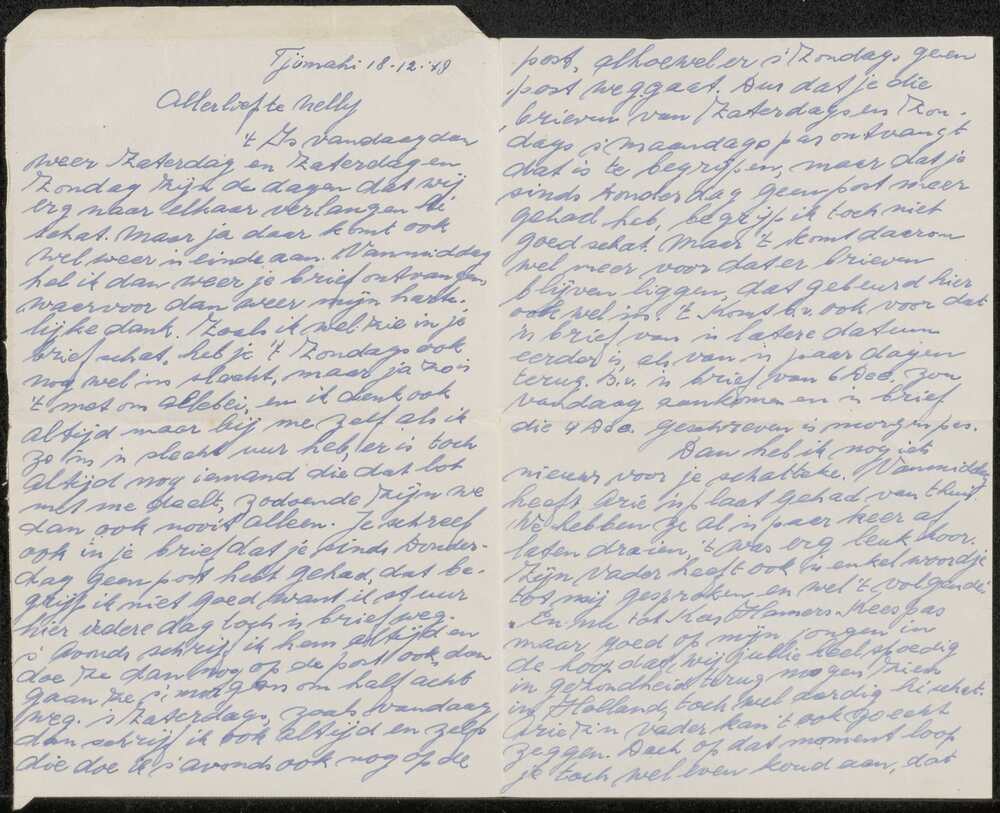 Tjimahi 18-12-'48
Allerliefste Nelly
't Is vandaag dan
weer Zaterdag en Zaterdag en
Zondag zijn de dagen dat wij
erg naar elkaar verlangen hé
schat. Maar ja daar komt ook
wel weer 'n einde aan. Vanmiddag
heb ik dan weer je brief ontvangen
waarvoor dan weer mijn harte-
lijke dank. Zoals ik wel zie in je
brief schat, heb je 't Zondags ook
nog wel ins slecht, maar ja zo is
't met ons allebei, en ik denk ook
altijd maar bij me zelf als ik
zo ins 'n slecht uur heb, er is toch
altijd nog iemand die dat lot
met me deelt, zodoende zijn we
dan ook nooit alleen. Je schreef
ook in je brief dat je sinds Donder-
dag geen post hebt gehad, dat be-
grijp ik niet goed want ik stuur
hier iedere dag toch 'n brief weg.
's avonds schrijf ik hem altijd en
doe ze dan nog op de post ook, dan
gaan ze 's morgens om half acht
weg. 's Zaterdags, zoals vandaag
dan schrijf ik ook altijd en zelfs
die doe ik 's avonds ook nog op de
post, alhoewel er 's Zondags geen
post weggaat. Dus dat je die
brieven van Zaterdags en Zon-
dags 's maandags pas ontvangt
dat is te begrijpen, maar dat je
sinds Donderdag geen post meer
gehad heb, begrijp ik toch niet
goed schat. Maar 't komt daarom
wel meer voor dat er brieven
blijven liggen, dat gebeurd hier
ook wel ins. 't Komt b.v. ook voor dat
'n brief van 'n latere datum
eerder is, als van 'n paar dagen
terug. B.v. 'n brief van 6 Dec. zou
vandaag aankomen en 'n brief
die 4 Dec. geschreven is morgen pas.
Dan heb ik nog iets
nieuws voor je schatteke. Vanmiddag
heeft Arie 'n plaat gehad van thuis
We hebben ze al 'n paar keer af
laten draaien, 't was erg leuk hoor.
Zijn vader heeft ook 'n enkel woordje
tot mij gesproken en wel 't volgende:
"En nu tot Kees Hamers. Kees pas
maar goed op mijn jongen in
de hoop dat wij jullie heel spoedig
in gezondheid terug mogen zien
in Holland, toch wel aardig hé schat.
Arie z'n vader kan 't ook zo echt
zeggen. Doch op dat moment loop
je toch wel even koud aan, dat